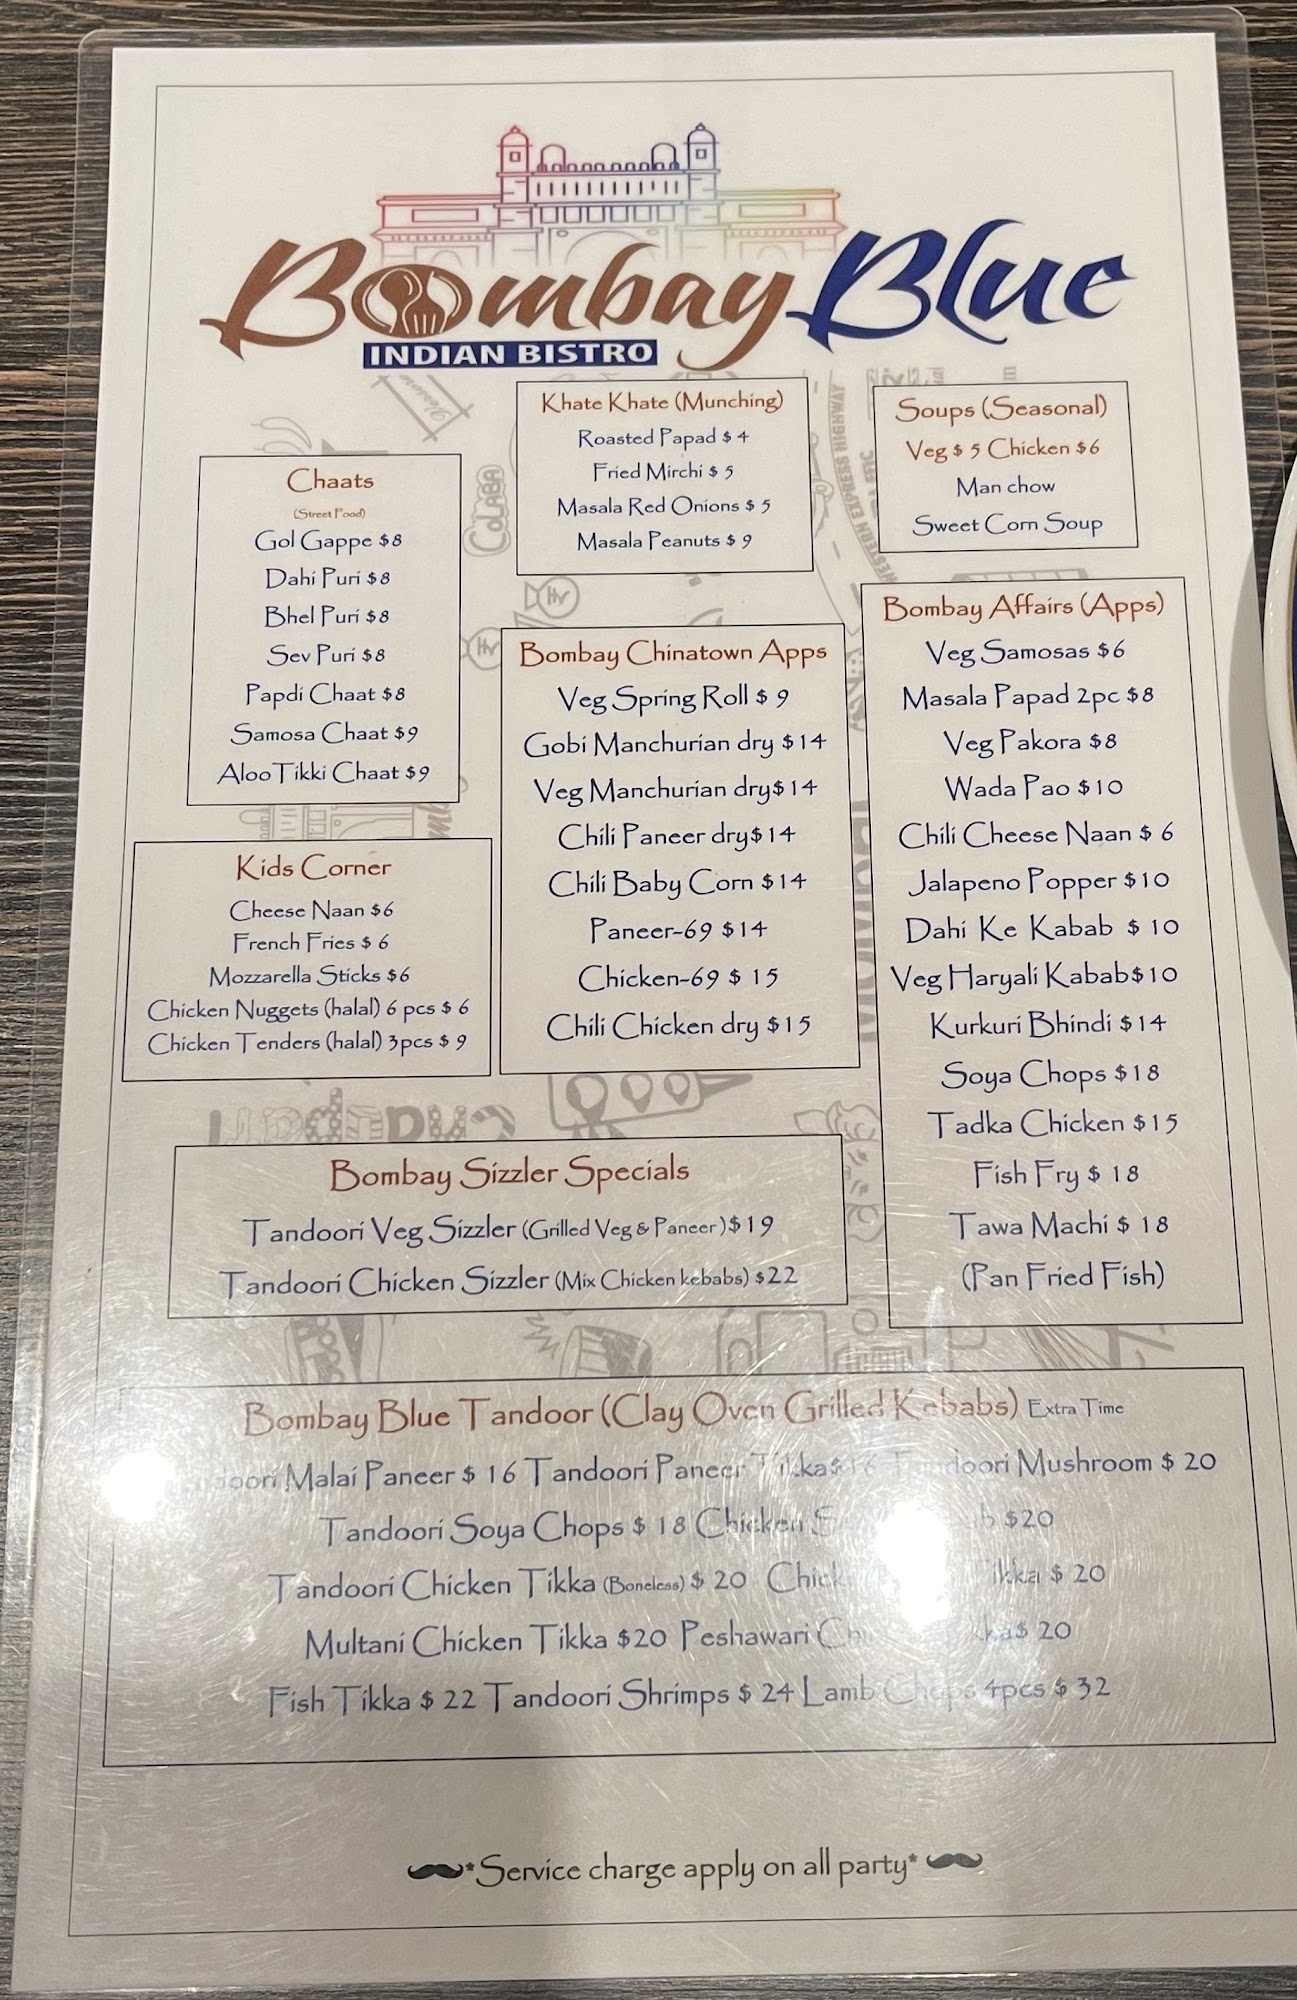 Bombay Blue
INDIAN BISTRO
Khate Khate (Munching)
Roasted Papad $ 4
Fried Mirchi $ 5
Masala Red Onions $ 5
Masala Peanuts $ 9
Soups (Seasonal)
Veg $ 5 Chicken $6
Man chow
Sweet Corn Soup
Chaats
(Street Food)
Gol Gappe $8
Dahi Puri $8
Bhel Puri $8
Sev Puri $8
Papdi Chaat $8
Samosa Chaat $9
Aloo Tikki Chaat $9
COLABA
Bombay Chinatown Apps
Veg Spring Roll $ 9
Gobi Manchurian dry $14
Veg Manchurian dry$14
Chili Paneer dry$14
Chili Baby Corn $14
Paneer-69 $14
Chicken-69 $ 15
Chili Chicken dry $15
Bombay Affairs (Apps)
Veg Samosas $6
Masala Papad 2pc $8
Veg Pakora $8
Wada Pao $10
Chili Cheese Naan $ 6
Jalapeno Popper $10
Dahi Ke Kabab $ 10
Veg Haryali Kabab$10
Kurkuri Bhindi $14
Soya Chops $18
Tadka Chicken $15
Fish Fry $ 18
Tawa Machi $ 18
(Pan Fried Fish)
Kids Corner
Cheese Naan $6
French Fries $ 6
Mozzarella Sticks $6
Chicken Nuggets (halal) 6 pcs $ 6
Chicken Tenders (halal) 3pcs $ 9
Bombay Sizzler Specials
Tandoori Veg Sizzler (Grilled Veg & Paneer)$19
Tandoori Chicken Sizzler (Mix Chicken kebabs) $22
Bombay Blue Tandoor (Clay Oven Grilled Kebabs) Extra Time
Malai Paneer $ 16 Tandoori Paneer Tikka$16 Tandoori Mushroom $ 20
Tandoori Soya Chops $ 18 Chicken $20
Tandoori Chicken Tikka (Boneless) $ 20 Tikka $ 20
Multani Chicken Tikka $20 Peshawari $ 20
Fish Tikka $ 22 Tandoori Shrimps $ 24 Lamb Chops 4pcs $ 32
*Service charge apply on all party*